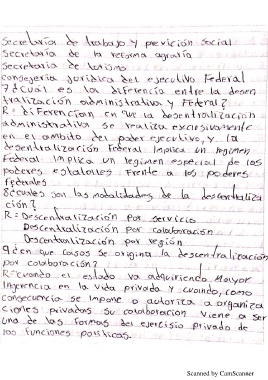 Secretaría de trabajo y previción social
Secretaría de la reforma agraria
Secretaria de turismo
consejería juridica del ejecutivo Federal
7 ¿cual es la diferencia entre la descen
tralización administrativa y Federal?
R: diferencian en que la descentralización
administrativa se realiza exclusivamente
en el ambito del poder ejecutivo, y la
descentralización Federal implica un regimen
Federal implica un regimen especial de los
poderes estatales frente a los poderes
federales
8 cuales son las modalidades de la descentraliza
ción?
R: Descentralización por servicio
Descentralización por colaboración
Descentralización por región
9 ¿en que casos se origina la descentralización
por colaboración?
R: cuando el estado va adquiriendo Mayor
ingerencia en la vida privada y cuando, como
consecuencia se impone o autoriza a organiza
ciones privadas su colaboración viene a ser
una de las formas del ejercisio privado de
las funciones politicas.
Scanned by CamScanner